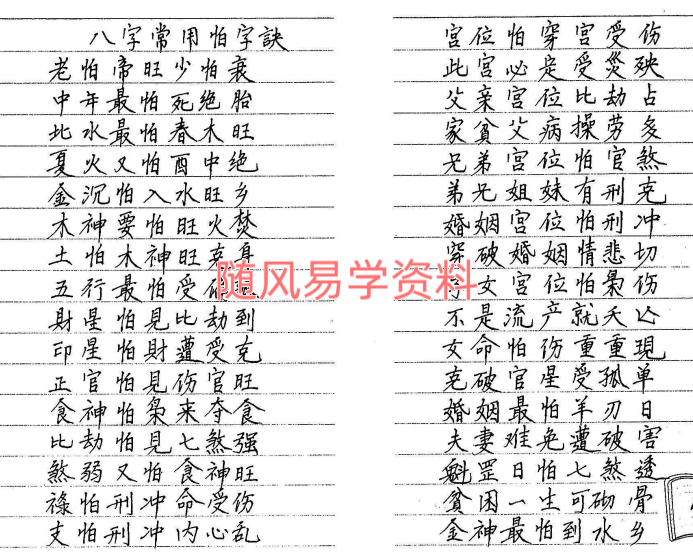 八字常用怕字訣
老怕帝旺少怕衰
中年最怕死绝胎
北水最怕春木旺
夏火又怕酉中绝
金沉怕入水旺乡
木神要怕旺火焚
土怕木神旺克身
五行最怕受
財星怕見比劫到
印星怕財遭受克
正官怕見伤官旺
食神怕枭来夺食
比劫怕見七煞强
煞弱又怕食神旺
祿怕刑冲命受伤
支怕刑冲内心乱
宫位怕穿宫受伤
此宫必定受災殃
父亲宫位比劫占
家貧父病操劳多
兄弟宫位怕官煞
弟兄姐妹有刑克
婚姻宫位怕刑冲
穿破婚姻情悲切
子女宫位怕枭伤
不是流产就夭亡
女命怕伤重重現
克破官星受孤单
婚姻最怕羊刃日
夫妻难免遭破害
魁罡日怕七煞透
貧困一生可砌骨
金神最怕到水乡
随风易学资料